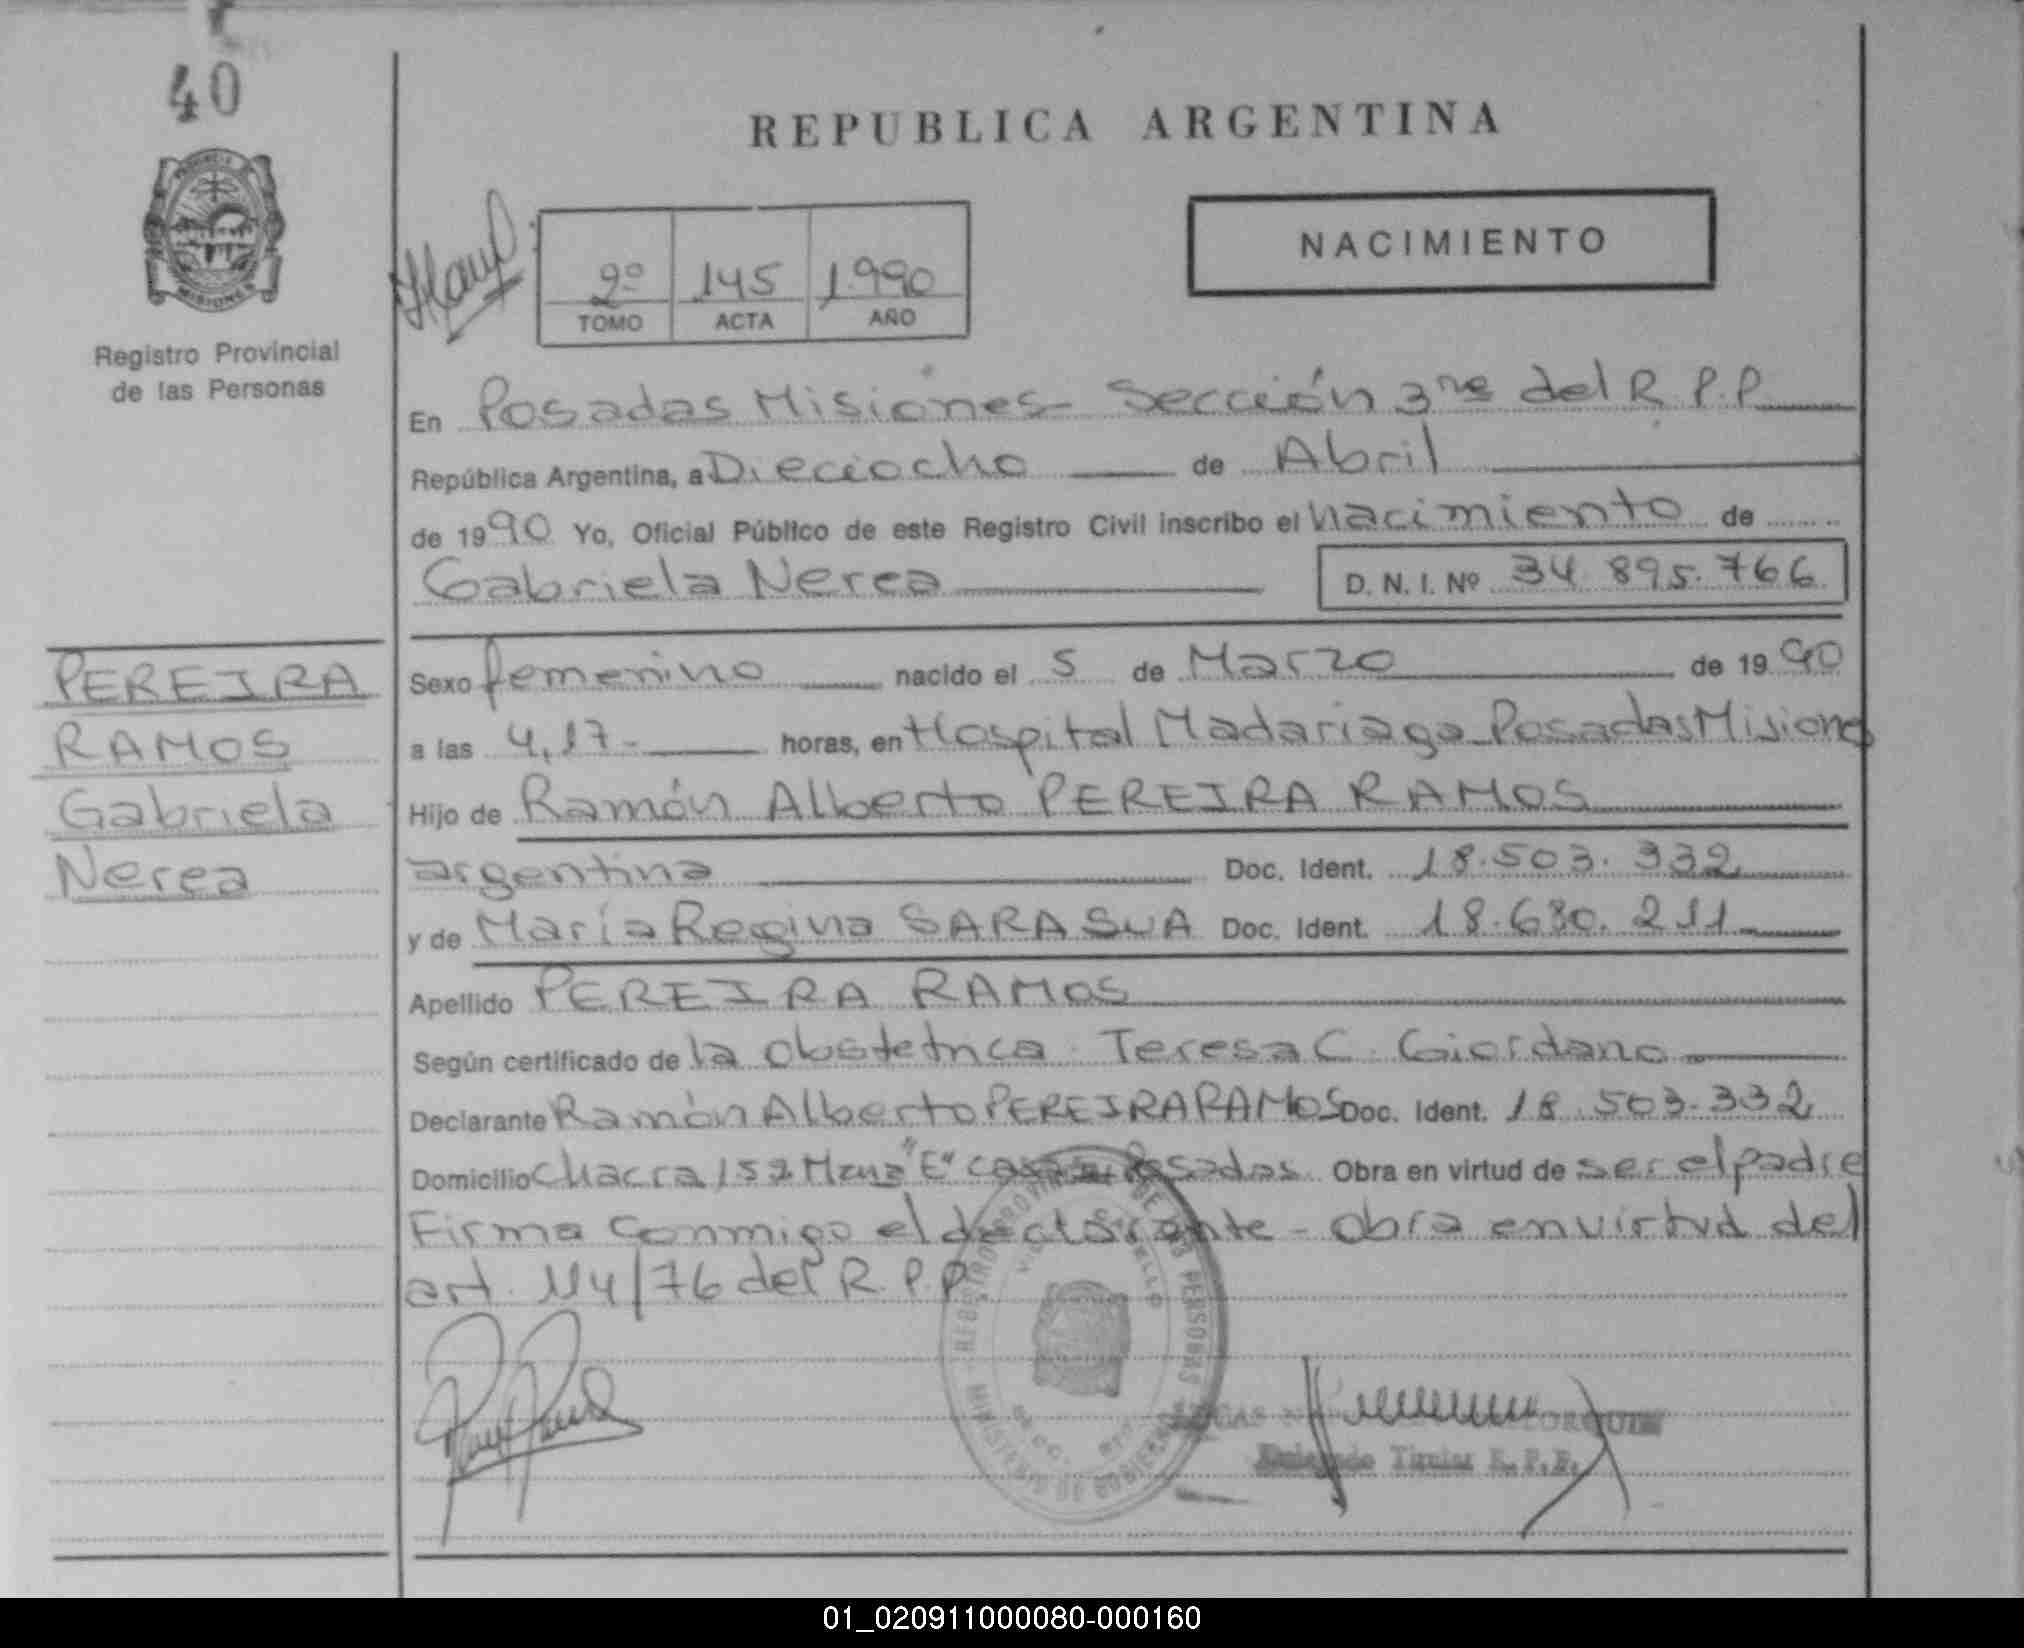 40
PROVINCIA
MISIONES
Registro Provincial
de las Personas
REPUBLICA ARGENTINA
NACIMIENTO
2º 145 1990
TOMO ACTA AÑO
En Posadas Misiones - Sección 3ra del R.P.P.
República Argentina, a Dieciocho de Abril
de 1990 Yo, Oficial Público de este Registro Civil inscribo el nacimiento de
Gabriela Nerea D. N. I. Nº 34.895.766
PEREIRA
RAMOS
Gabriela
Nerea
Sexo femenino nacido el 5 de Marzo de 1990
a las 4,17- horas, en Hospital Madariaga Posadas Misiones
Hijo de Ramón Alberto PEREIRA RAMOS
argentina Doc. Ident. 18.503.332
y de María Regina SARASUA Doc. Ident. 18.680.211
Apellido PEREIRA RAMOS
Según certificado de la obstetrica Teresa C. Giordano
Declarante Ramón Alberto PEREIRA RAMOS Doc. Ident. 18.503.332
Domicilio Chacra 152 Mzna "E" casa Posadas Obra en virtud de ser el padre
Firma conmigo el declarante - obra en virtud del
art. 114/76 del R.P.P.
REGISTRO PROVINCIAL DE LAS PERSONAS
MINISTERIO DE GOBIERNO
Titular R.P.P.
01_020911000080-000160